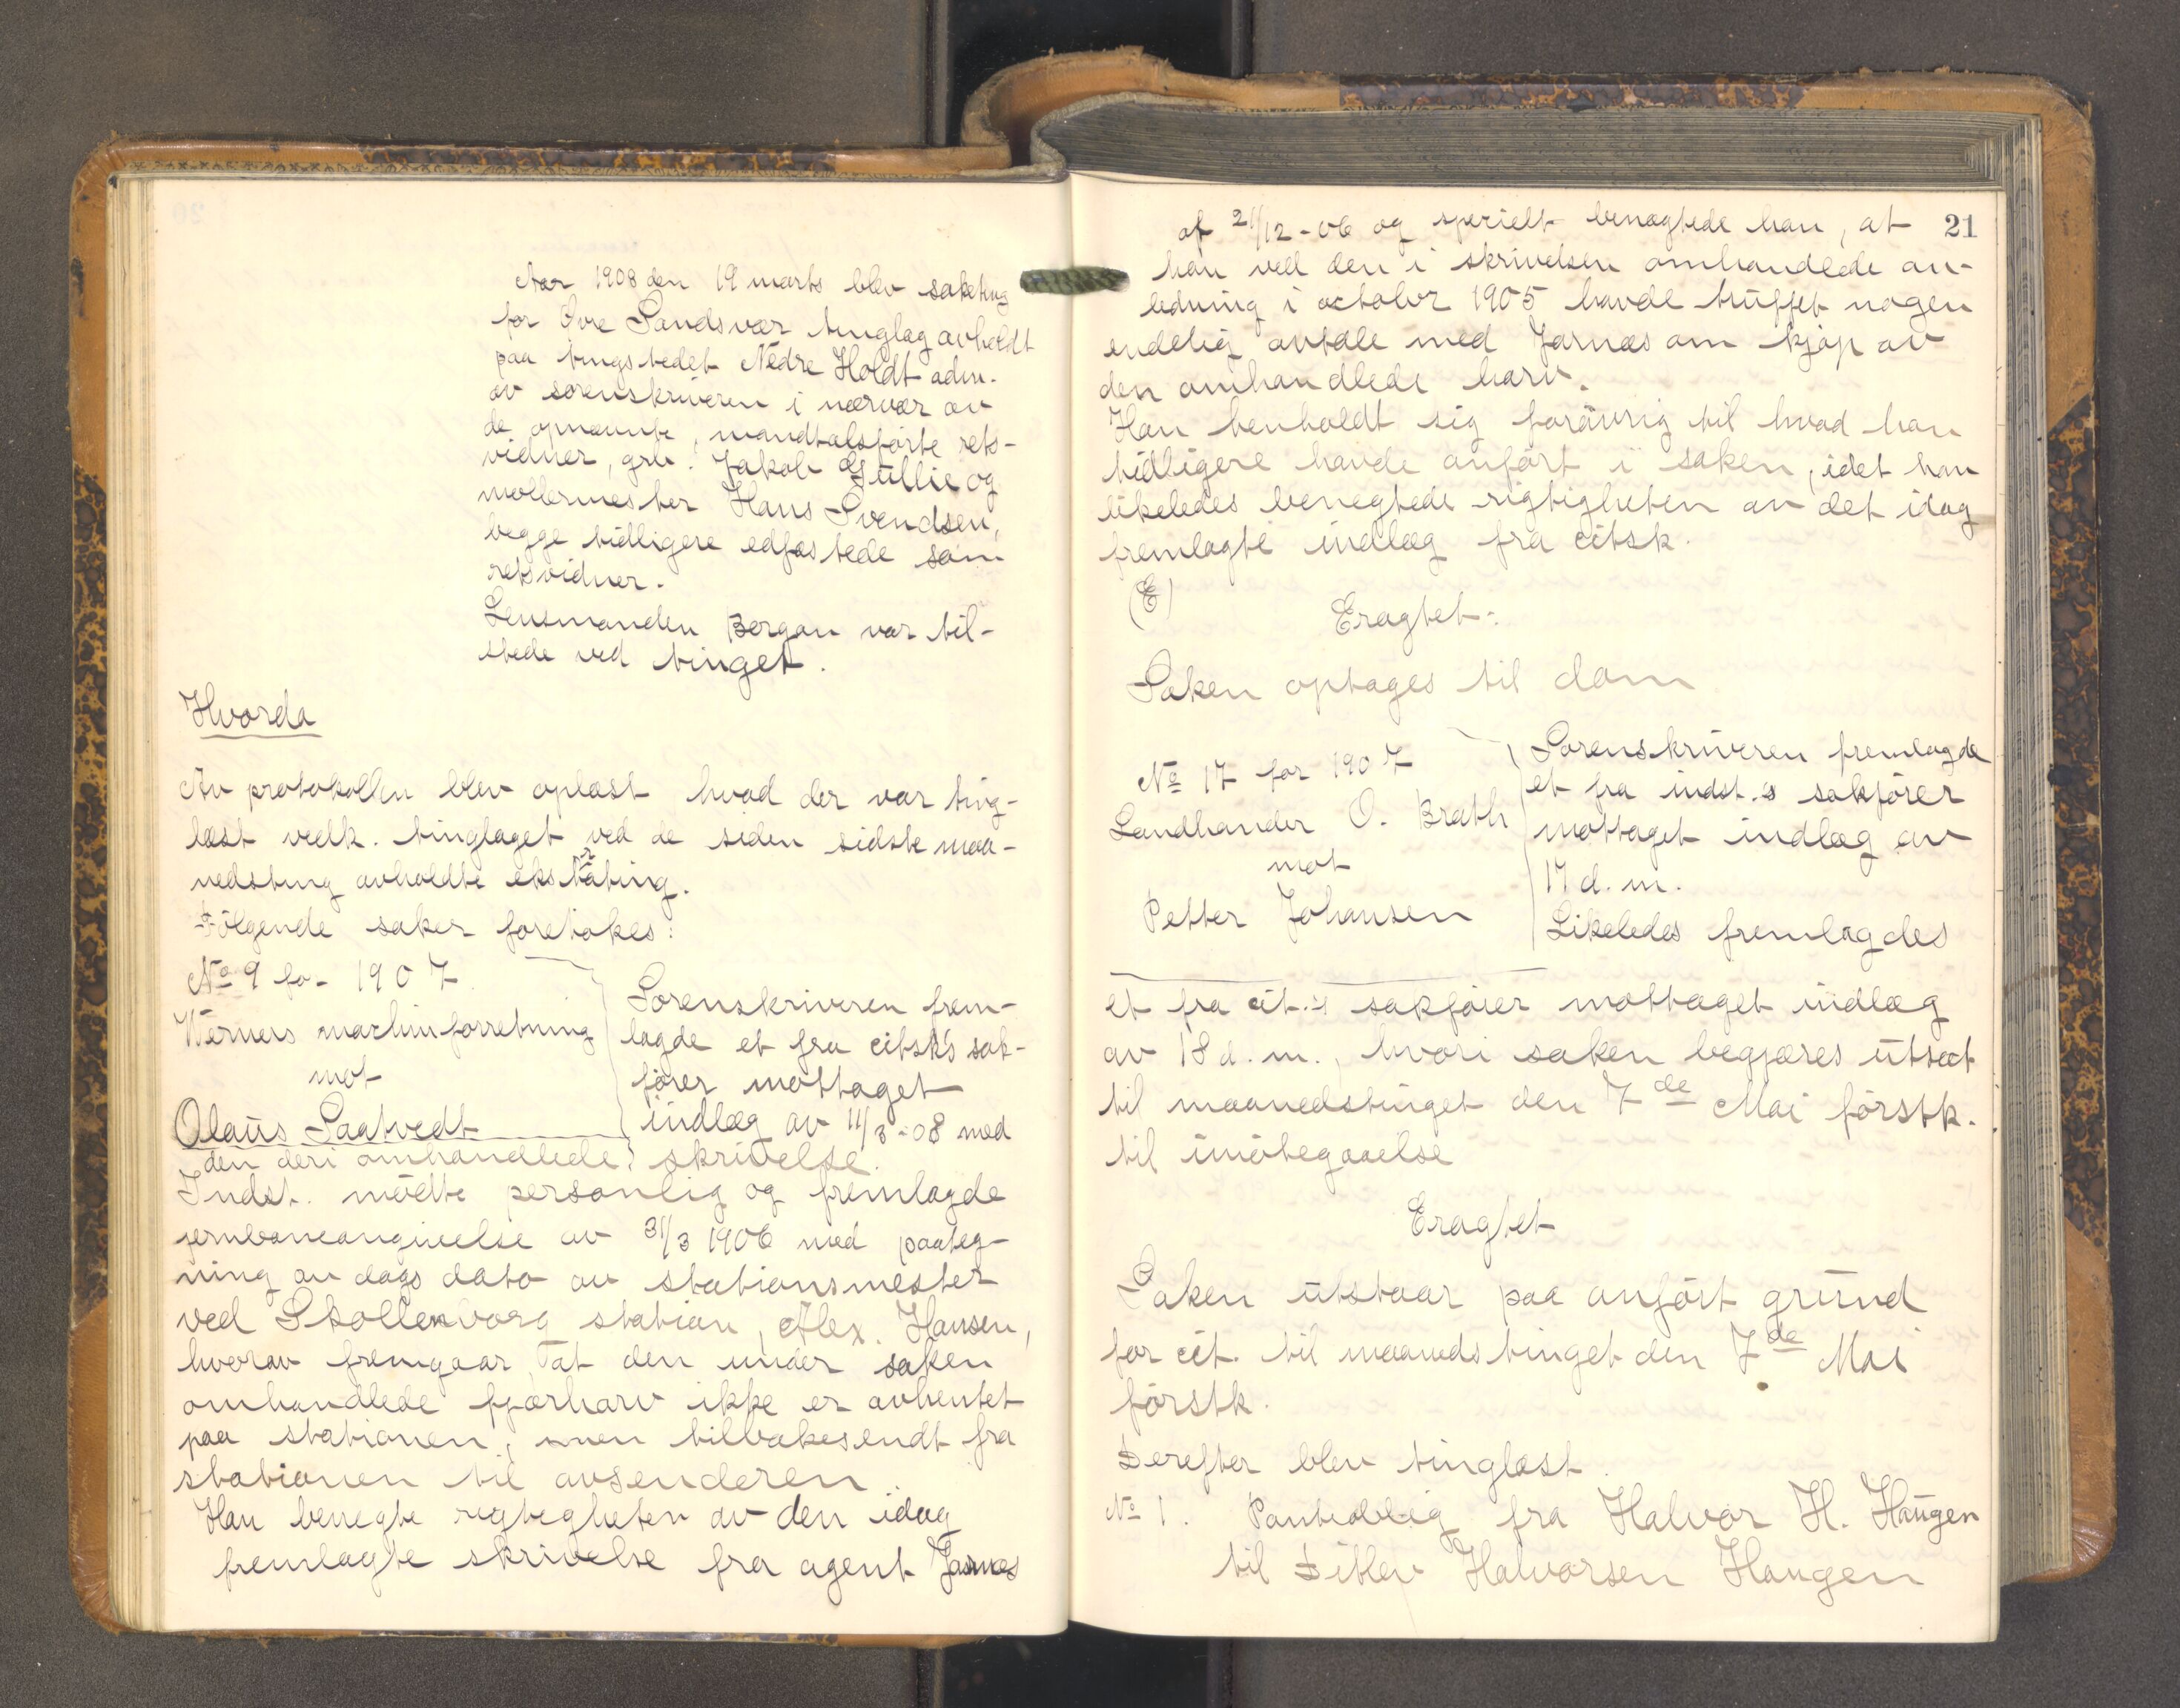 Aar 1908 den 19 marts blev saketing
for Øvre Sandsvær tinglag avholdt
paa tingstedet Nedre Holdt adm.
av sorenskriveren i nærvær av
de opnævnte, mandtalsførte rets-
vidner, grb. Jakob Gullie og
møllermester Hans Svendsen,
begge tidligere edfæstede som
retsvidner.
Lensmanden Bergan var til-
stede ved tinget.
Hvorda
Av protokollen blev oplæst hvad der var ting-
læst vedk. tinglaget ved de siden sidste maa-
nedsting avholdte ekstrating.
Følgende saker foretokes:
No 9 for 1907
Werners maskinforretning
mot
Olaus Saatvedt
Sorenskriveren frem-
lagde et fra citsk's sak-
fører mottaget
indlæg av 11/3-08 med
den deri omhandlede skrivelse.
Indst. mødte personlig og fremlagde
jernbaneangivelse av 31/3 1906 med paateg-
ning av dags dato av stationsmester
ved Skollenborg station, Alex. Hansen,
hvorav fremgaar, at den under saken
omhandlede fjærharv ikke er avhentet
paa stationen, men tilbakesendt fra
stationen til avsenderen.
Han benegte rigtigheten av den idag
fremlagte skrivelse fra agent Jarnes
21
af 21/12-06 og specielt benægtede han, at
han ved den i skrivelsen omhandlede an-
ledning i october 1905 havde truffet nogen
endelig avtale med Jarnæs om kjøp av
den omhandlede harv.
Han henholdt sig forøvrig til hvad han
tidligere havde anført i saken, idet han
likeledes benegtede rigtigheten av det idag
fremlagte indlæg fra citsk.
(E)
Eragtet:
Saken optages til dom
No 17 for 1907
Landhandler O. Brath
mot
Petter Johansen
Sorenskriveren fremlagde
et fra indst.s sakfører
mottaget indlæg av
17 d. m.
Likeledes fremlagdes
et fra cit.s sakfører mottaget indlæg
av 18 d. m., hvori saken begjæres utsat
til maanedstinget den 7de Mai førstk.
til imøtegaaelse
Eragtet
Saken utstaar paa anført grund
for cit. til maanedstinget den 7de Mai
førstk.
Derefter blev tinglæst.
No 1. Panteoblig fra Halvor H. Haugen
til Ditlev Halvorsen Haugen